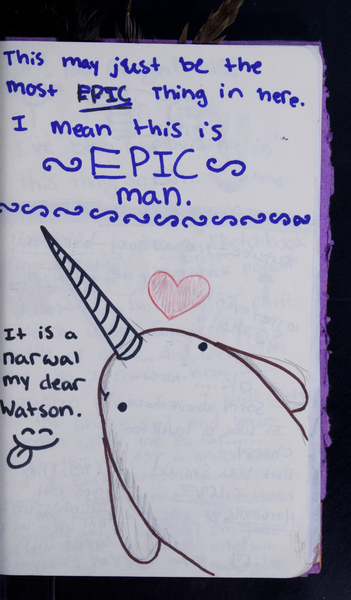 This may just be the
most EPIC Thing in here.
I mean this is
~EPIC~
man.
It is a
narwal
my dear
Watson.